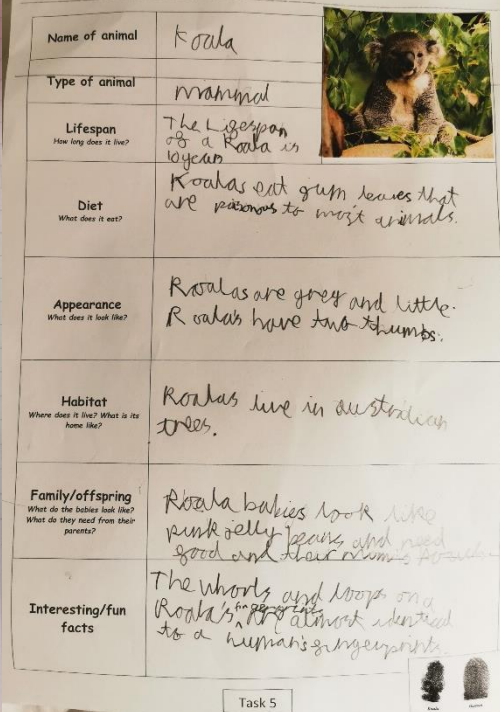 Name of animal
Koala
Type of animal
mammal
Lifespan
How long does it live?
The Lifespan
of a Koala is
10 years
Diet
What does it eat?
Koalas eat gum leaves that
are poisonous to most animals.
Appearance
What does it look like?
Koalas are grey and little.
Koala's have two thumbs.
Habitat
Where does it live? What is its
home like?
Koalas live in australian
trees.
Family/offspring
What do the babies look like?
What do they need from their
parents?
Koala babies look like
pink jelly beans and need
food and their mum's
Interesting/fun
facts
The whorls and loops on a
Koala's fingerprints are almost identical
to a human's fingerprints.
Task 5
Koala
Human